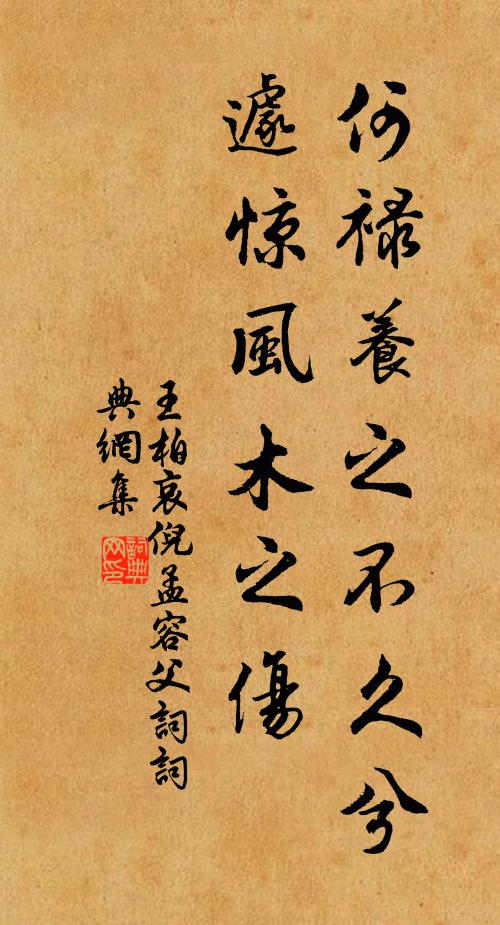 何禄養之不久兮
遽惊風木之傷
王柏哀倪孟容父詞詞
典網集
詞典网印